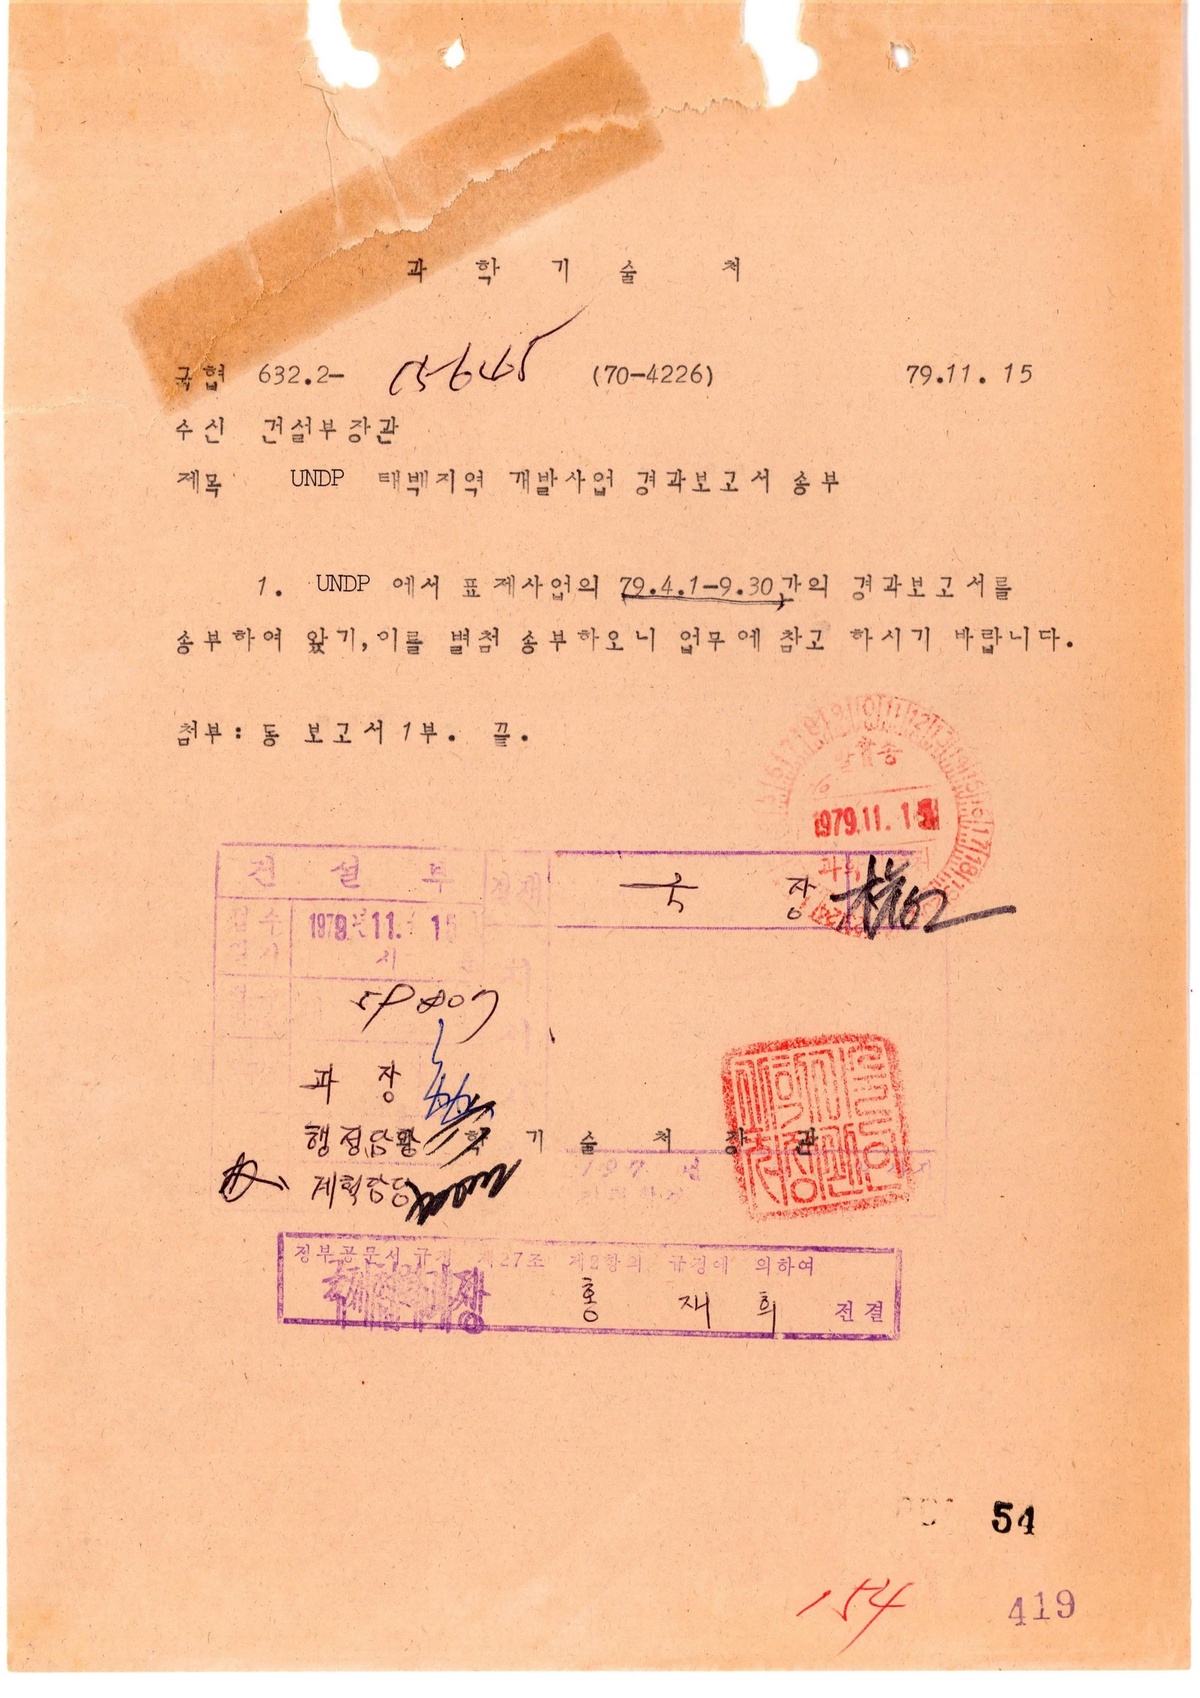 과 학 기 술 처
국협 632.2- 15645 (70-4226) 79.11. 15
수신 건설부장관
제목 UNDP 태백지역 개발사업 경과보고서 송부
1. UNDP 에서 표제사업의 79.4.1-9.30간의 경과보고서를
송부하여 왔기,이를 별첨 송부하오니 업무에 참고 하시기 바랍니다.
첨부: 동 보고서 1부. 끌.
1979.11. 15
건 설 부
국 장
접수
1979. 11. 15
시
과 장
행정담당 학 기 술 처 장 관
계획담당
197 년
정부공문서 규정 제27조 제2항의 규정에 의하여
홍 재 희 전결
54
154
419